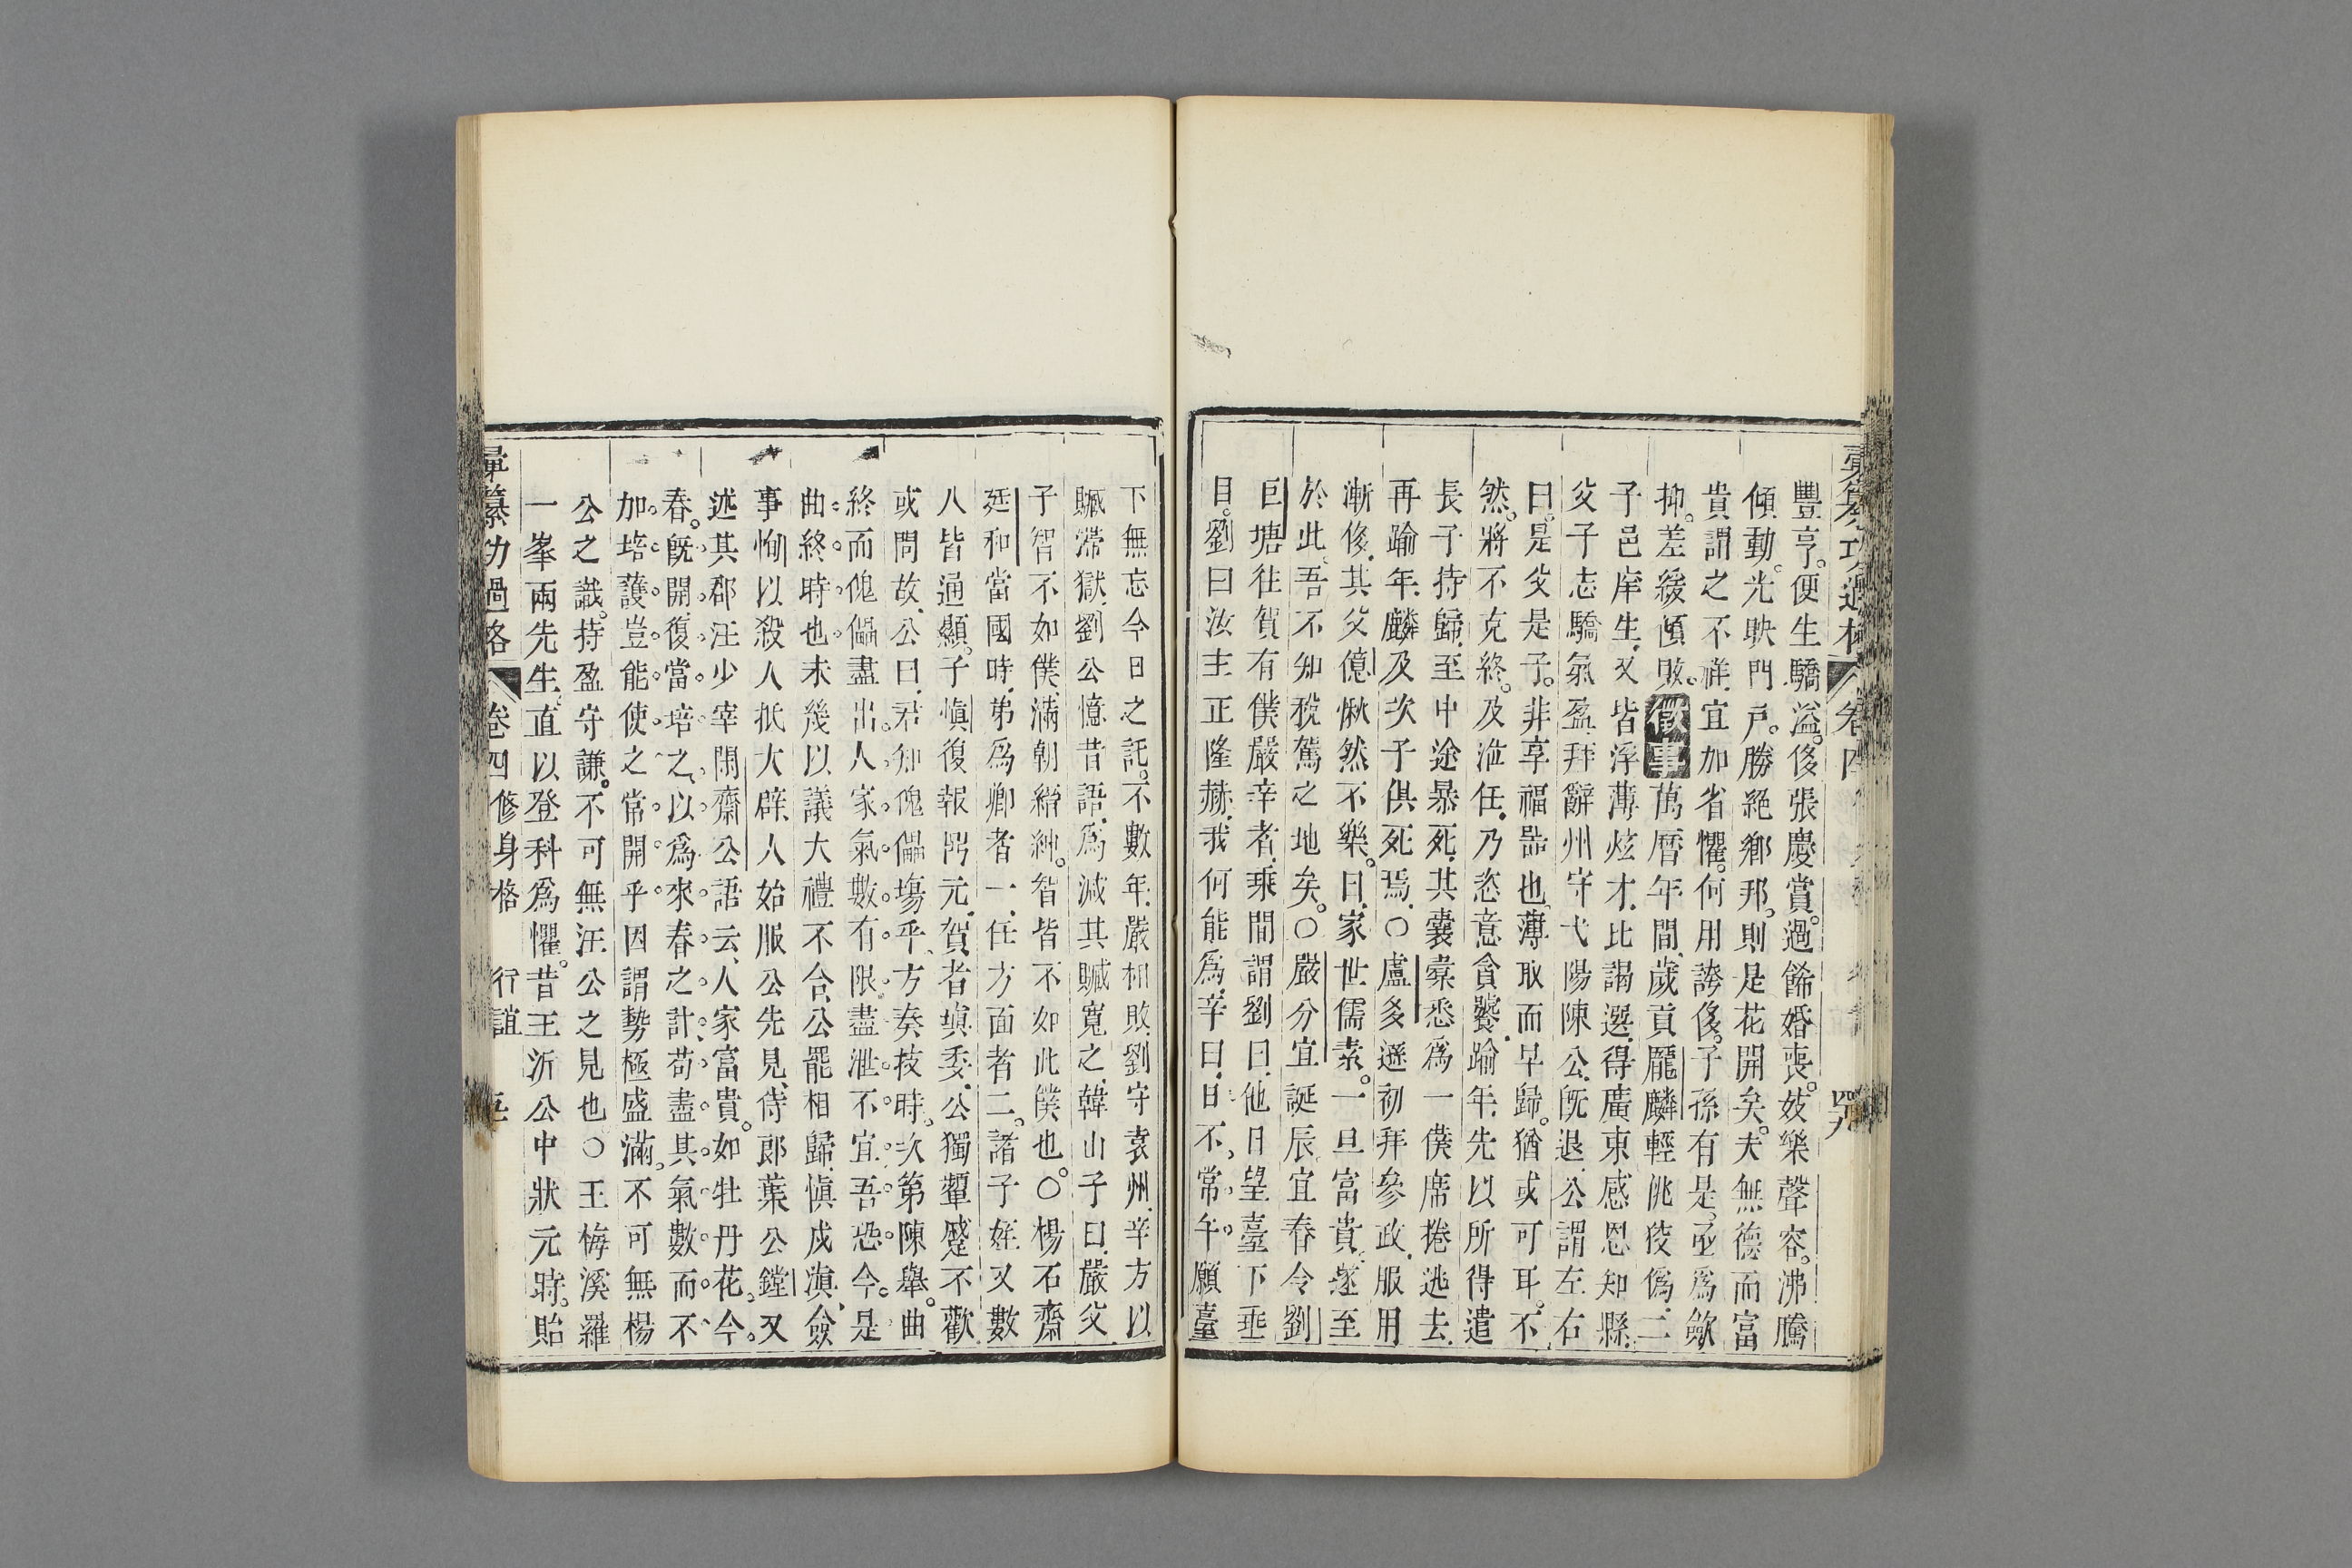 彙纂功過格 卷四 四九
豐亨。便生驕溢。侈張慶賞。過餙婚喪。妓樂聲容。沸騰
傾動。光映門戸。勝絕鄉邦。則是花開矣。夫無德而富
貴謂之不祥。宜加省懼。何用誇侈。子孫有是。亟爲斂
抑。差緩傾敗。徵事萬曆年間。歲貢龎麟輕佻狡僞。二
子邑庠生。又皆浮薄炫才。比謁選。得廣東感恩知縣。
父子志驕氣盈。拜辭州守弋陽陳公。旣退。公謂左右
曰。是父是子。非享福噐也。薄取而早歸。猶或可耳。不
然。將不克終。及涖任。乃恣意貪饕。踰年。先以所得遣
長子持歸。至中途暴死。其囊橐悉爲一僕席捲逃去。
再踰年。麟及次子俱死焉。○盧多遜初拜參政。服用
漸侈。其父億愀然不樂。曰。家世儒素。一旦富貴。遂至
於此。吾不知稅駕之地矣。○嚴分宜誕辰。宜春令劉
巨塘往賀有僕嚴辛者。乘間謂劉曰。他日望臺下垂
目。劉曰汝主正隆赫。我何能爲。辛曰。日不常午。願臺
下無忘今日之託。不數年。嚴相敗。劉守袁州。辛方以
贓滯獄。劉公憶昔語。爲減其贓寬之。韓山子曰。嚴父
子智不如僕。滿朝縉紳。智皆不如此僕也。○楊石齋
廷和當國時。弟爲卿者一。任方面者二。諸子姪又數
人皆通顯。子愼復報臚元。賀者塡委。公獨顰蹙不歡。
或問故。公曰。君知傀儡塲乎。方奏技時。次第陳舉。曲
終而傀儡盡出。人家氣數有限。盡泄不宜。吾恐今是
曲終時也。未幾以議大禮不合。公罷相歸。愼戍滇。僉
事恂以殺人抵大辟。人始服公先見。侍郞葉公鏜又
述其郡汪少宰閑齋公語云。人家富貴。如牡丹花。今
春旣開。復當培之。以爲來春之計。苟盡其氣數而不
加培護。豈能使之常開乎。因謂勢極盛滿。不可無楊
公之識。持盈守謙。不可無汪公之見也○王梅溪羅
一峯兩先生。直以登科爲懼。昔王沂公中狀元時。貽
彙纂功過格 卷四 修身格 行誼 五